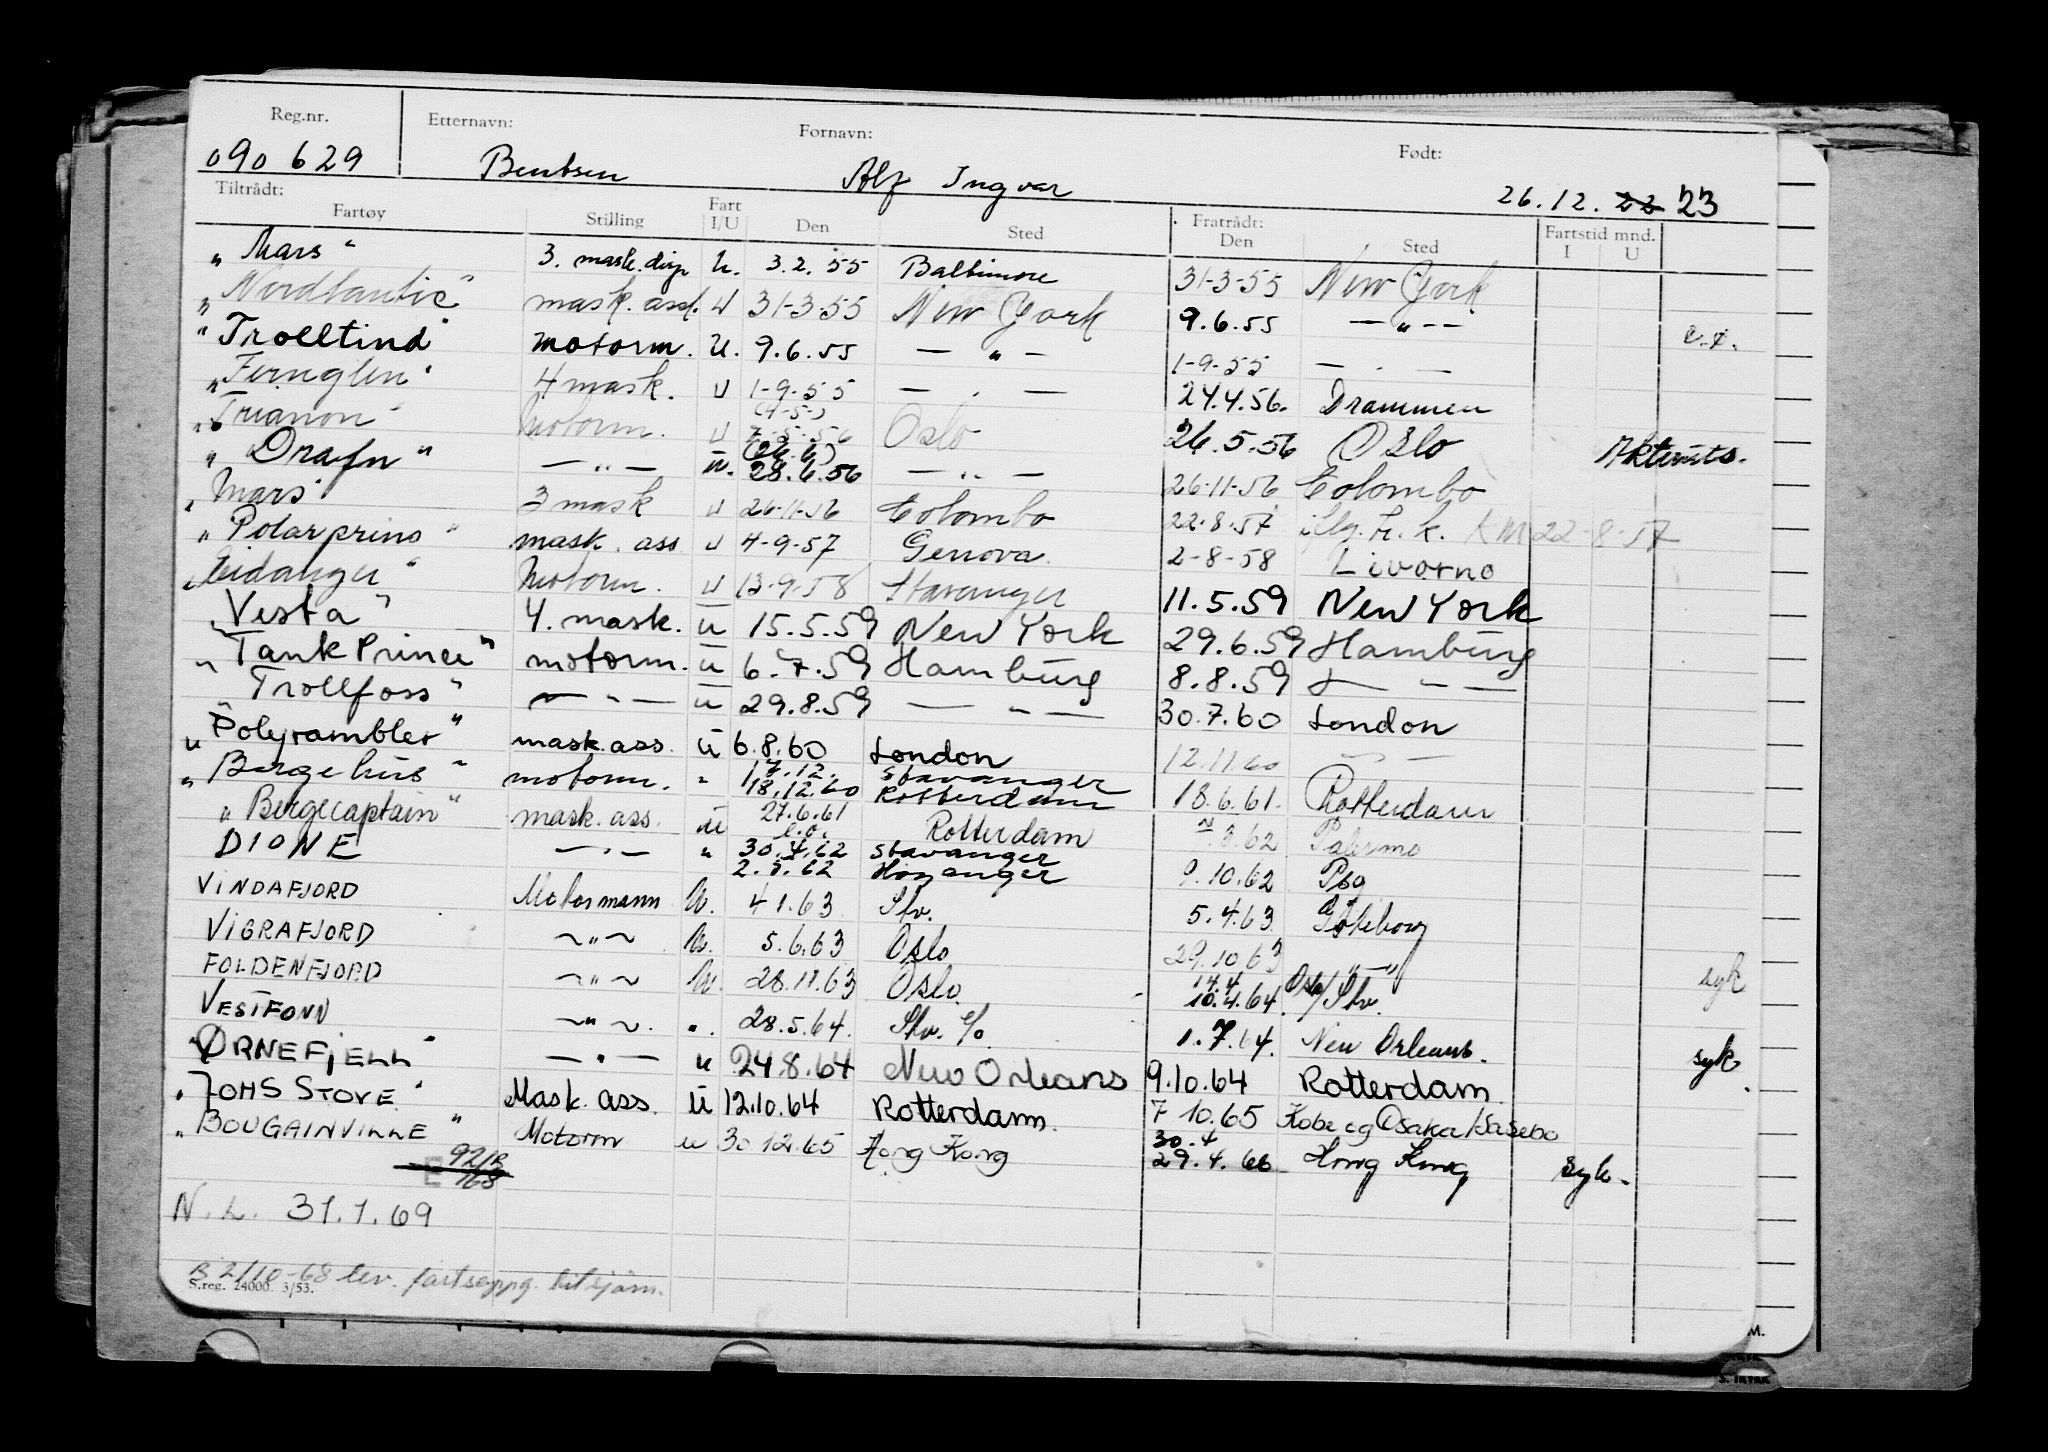 Reg.nr. Etternavn: Fornavn: Født:
090 629 Bentsen Alf Ingvar 26.12. 22 23
Tiltrådt: Fratrådt:
Fartøy Stilling Fart I/U Den Sted Den Sted Fartstid mnd. I U
"Mars" 3. mask. disp U. 3.2.55 Baltimore 31-3-55 New York
"Nordlantic" mask. ass. U 31-3-55 New York 9.6.55 — " —
"Trolltind" motorm. U. 9.6.55 — " — 1-9-55 — . —
"Fernglen" 4 mask. U 1-9-55 — . — 24.4.56. Drammen
"Trianon" Motorm. U (4-5-) 7-5-56 Oslo 26.5.56 Oslo
"Drafn" — " — U. (26.6) 28.6.56 — " — 26-11-56 Colombo
"Mars" 3 mask U 26-11-56 Colombo 22-8-57 22-8-57
"Polarprins" mask. ass U 4-9-57 Genova. 2-8-58 Livorno
"Eidanger" Motorm. U 13-9-58 Stavanger 11.5.59 New York
"Vesta" 4. mask. U 15.5.59 New York 29.6.59 Hamburg
"Tank Prince" motorm. U 6.7.59 Hamburg 8.8.59 — " —
"Trollfoss" — " — U 29.8.59 — " — 30.7.60 London
"Polyrambler" mask. ass. U 6.8.60 London 12.11.60 — " —
"Bergehus" motorm. " 17.12. 18.12.60 Stavanger Rotterdam 18.6.61. Rotterdam
"Bergecaptain" mask. ass. U 27.6.61 e.o. Rotterdam 62 Palermo
DIONE — " — " 30.4.62 2.5.62 Stavanger Høyanger 9.10.62 Pbg
VINDAFJORD Motormann U. 4.1.63 Stv. 5.4.63 Göteborg
VIGRAFJORD ~ " ~ U. 5.6.63 Oslo 29.10.63 — " — syk
FOLDENFJORD ~ " ~ U. 28.11.63 Oslo 14.4 10.4.64 Oslo/Stv.
VESTFONN ~ " ~. ". 28.5.64. Stv. e/o 1.7.64. New Orleans. syk
"ØRNEFJELL" — " — U 24.8.64 New Orleans 9.10.64 Rotterdam.
"JOHS STOVE" Mask. ass. U 12.10.64 Rotterdam. 7 10.65 Kobe og Osaka/Sasebo
"BOUGAINVILLE" Motorm U 30 12.65 Hong Kong 30.4 29.4.66 Hong Kong syk.
E 921R/68
N.L. 31.1.69
B 2/10-68 lev. fartsoppg. til sjøm.
S.reg. 24000 3/53.